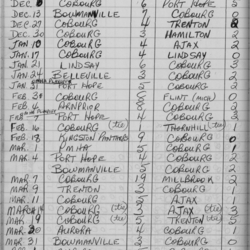 DEC 6 COBOURG 6 PORT HOPE 2
DEC 13 BOWMANVILLE 7 COBOURG
DEC 27 COBOURG 4 TRENTON 8
DEC 30 COBOURG 3 HAMILTON 2
JAN 10 COBOURG 4 AJAX 2
JAN 17 COBOURG 4 LINDSAY 2
JAN 21 LINDSAY 6 COBOURG 3
JAN 24 BELLEVILLE 3 COBOURG 2
JAN 31 PORT HOPE 5 COBOURG 2
FEB 3 COBOURG 8 FLINT 2
FEB 6 COBOURG 2
FEB 7 PORT HOPE 4 COBOURG 2
FEB 16 COBOURG (tie) THORNHILL (tie) 1
FEB 18 KINGSTON PANTHERS 9 COBOURG 0
MAR. 1 5 COBOURG 1
MAR 4 PORT HOPE 5 COBOURG 2
BOWMANVILLE 5 COBOURG 2
MAR 7 COBOURG 19 MILLBROOK 2
MAR 9 TRENTON 3 COBOURG 1
MAR 11 COBOURG 2 AJAX 2
MARCH COBOURG (tie) 3 AJAX (tie) 3
MAR 19 COBOURG (tie) TRENTON (tie) 5
MAR 20 AURORA 4 COBOURG 2
MAR 31 BOWMANVILLE 2 COBOURG 2